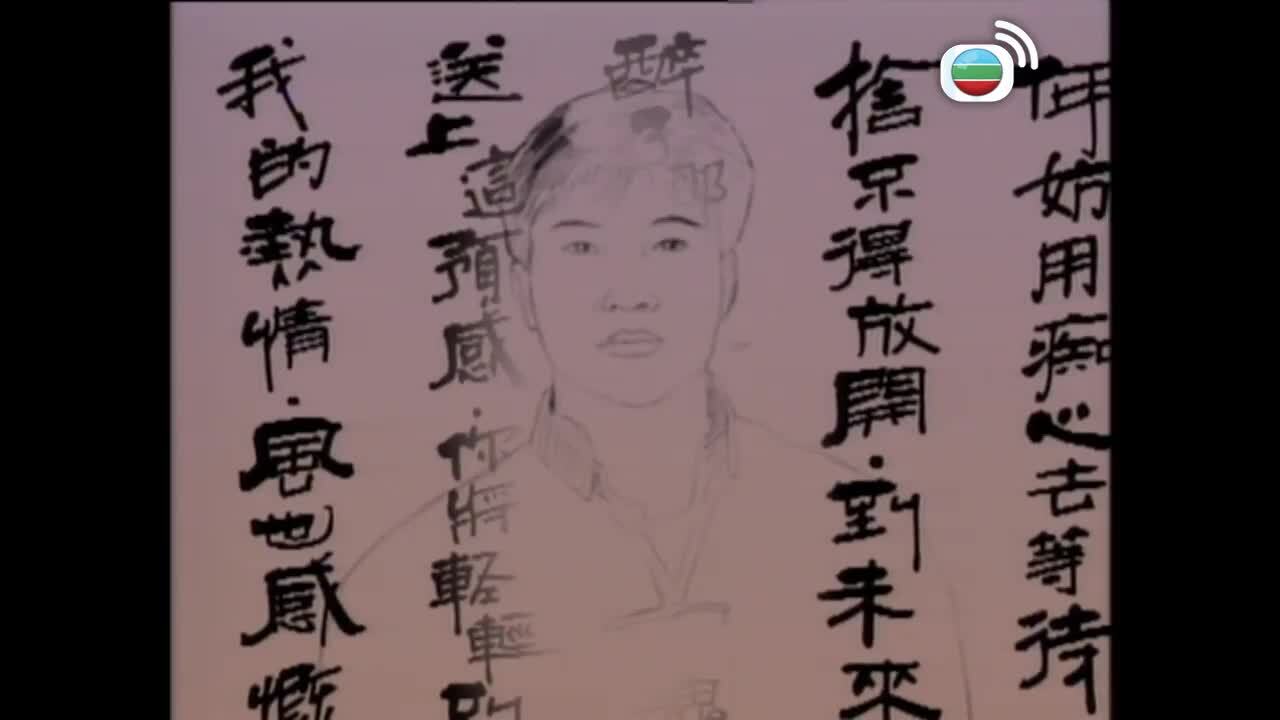 何妨用痴心去等待
捨不得放開·到未來
醉
那
送上這預感·你將輕輕
我的熱情·風也感慨